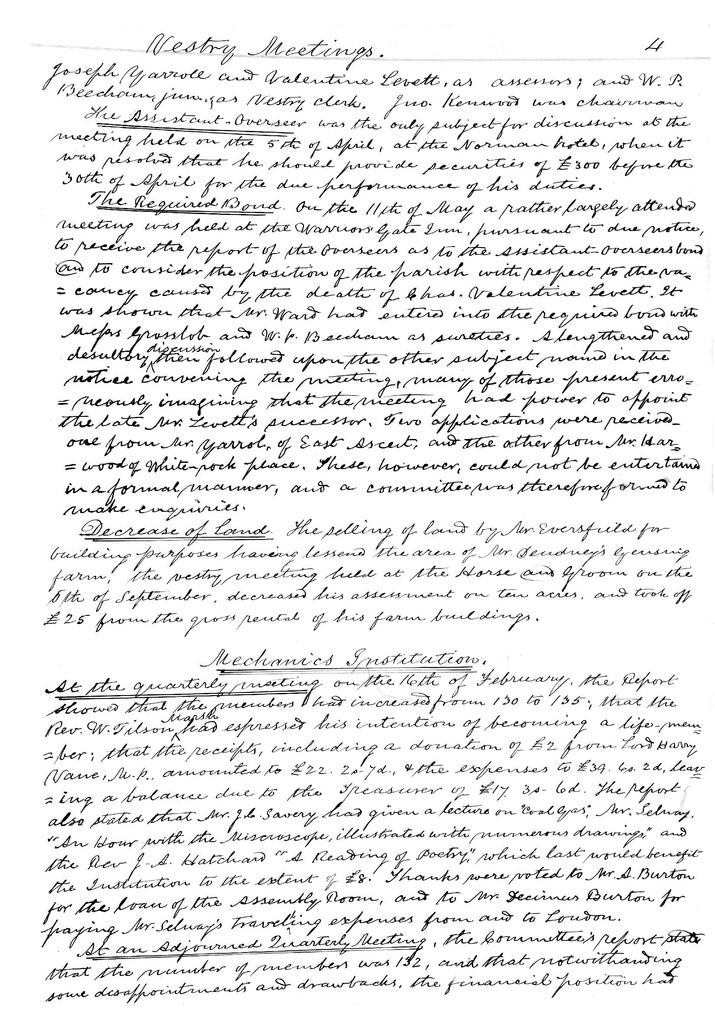 Vestry Meetings. 4
Joseph Yarroll and Valentine Levett, as assessors; and W. P.
Beecham, junr., as Vestry clerk. Jno. Kenwood was chairman
The Assistant-Overseer was the only subject for discussion at the
meeting held on the 5th of April, at the Norman hotel, when it
was resolved that he should provide securities of £300 before the
30th of April for the due performance of his duties.
The Required Bond. On the 11th of May a rather largely attended
meeting was held at the Warriors Gate Inn, pursuant to due notice,
to receive the report of the Overseers as to the Assistant-Overseers bond
and to consider the position of the parish with respect to the va-
=cancy caused by the death of Chas. Valentine Levett. It
was shown that Mr. Ward had entered into the required bond with
Messrs Grosslob and W. P. Beecham as sureties. A lengthened and
desultory discussion then followed upon the other subject named in the
notice convening the meeting, many of those present erro-
=neously imagining that the meeting had power to appoint
the late Mr. Levett's successor. Two applications were received-
one from Mr. Yarrol, of East Ascent, and the other from Mr. Har=
=wood of White-rock place. These, however, could not be entertained
in a formal manner, and a committee was therefore formed to
make enquiries.
Decrease of Land. The selling of land by Mr Eversfield for
building purposes having lessend the area of Mr Deudney's Gensing
farm, the vestry meeting held at the Horse and Groom on the
6th of September, decreased his assessment on ten acres, and took off
£25 from the gross rental of his farm buildings.
Mechanics Institution.
At the quarterly meeting on the 16th of February, the Report
showed that the members had increased from 130 to 135; that the
Rev. W. Tilson Marsh had expressed his intention of becoming a life-mem=
=ber; that the receipts, including a donation of £2 from Lord Harry
Vane, M.P. amounted to £22. 2s-7d, & the expenses to £39. 6s. 2d, leav-
=ing a balance due to the Treasurer of £17 3s-6d. The report
also stated that Mr. J. C. Savery had given a lecture on "Coal Gas", Mr. Selway,
"An Hour with the Miscroscope, illustrated with numerous drawings," and
the Rev J. A. Hatchard "A Reading of Poetry," which last would benefit
the Institution to the extent of £8. Thanks were voted to Mr. A. Burton
for the loan of the Assembly Room, and to Mr. Decimus Burton for
paying Mr. Selway's traveling expenses from and to London.
At an Adjourned Quarterly Meeting, the Committee's report state
that the number of members was 132, and that notwithanding
some disappointments and drawbacks, the financial position had